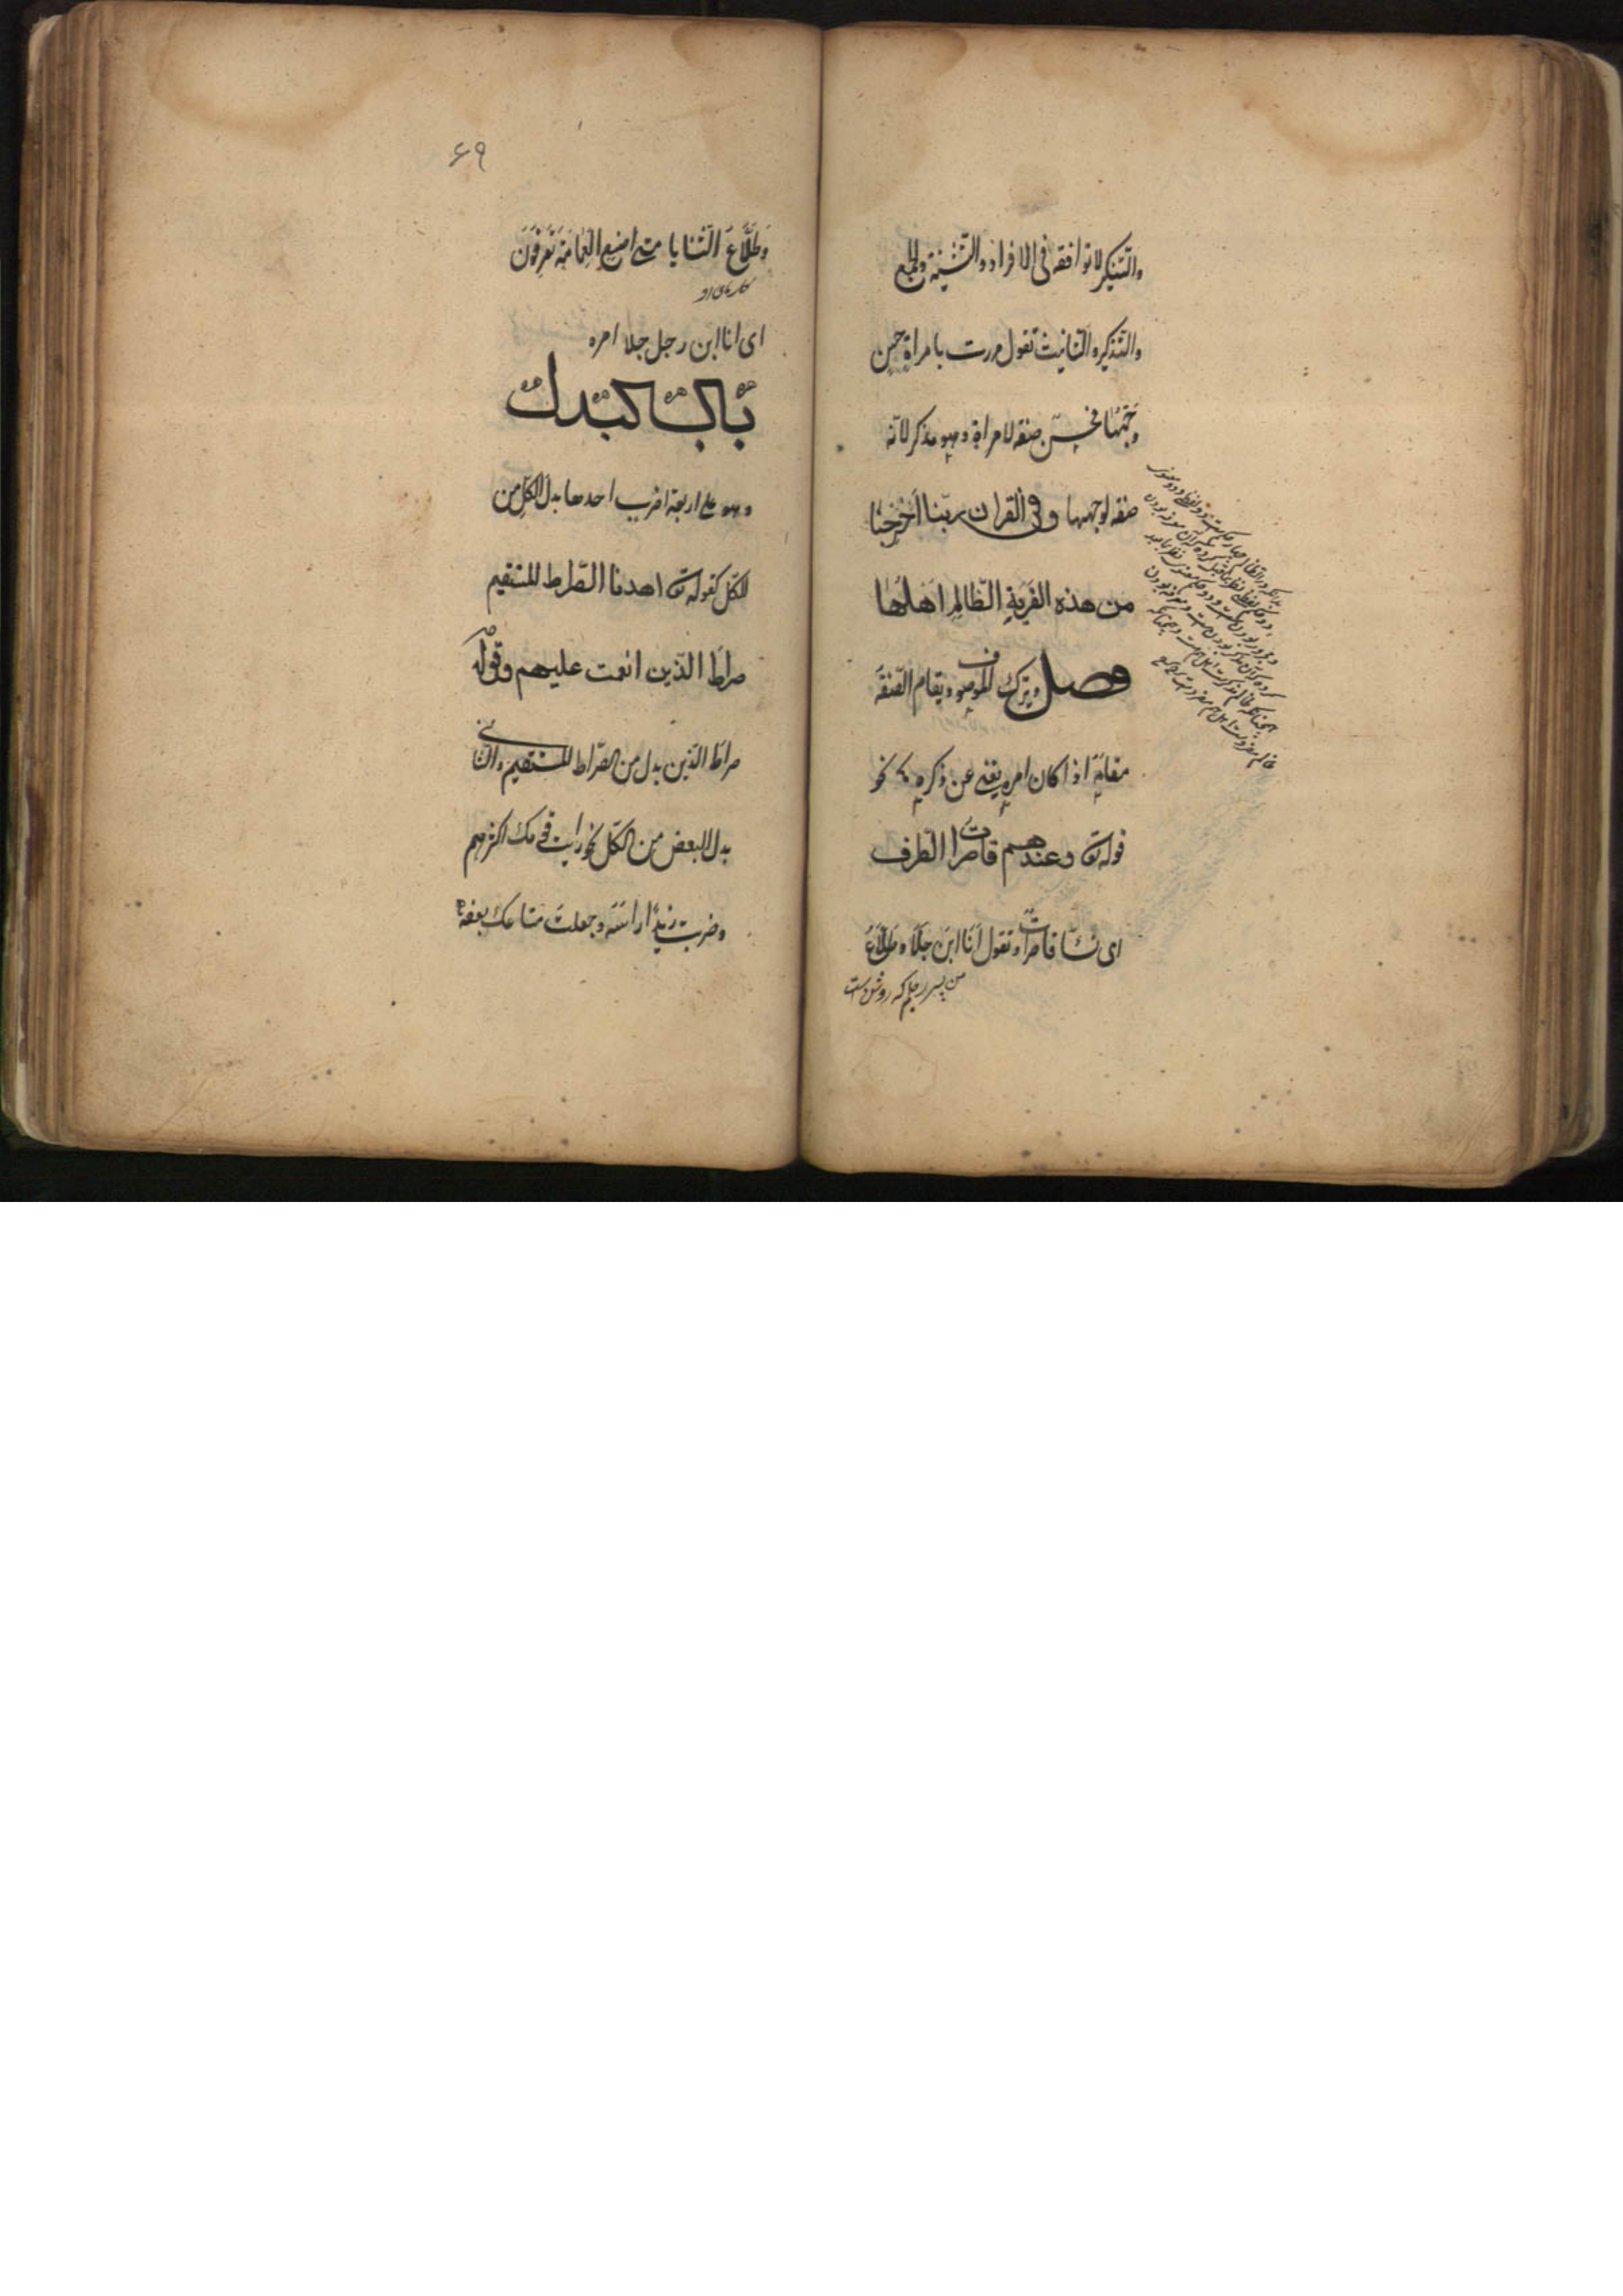 والتنكير لا توافقه فى الافراد والتّثنية والجمع
والتذكير والتانيث تقول مررت بامراة حسن
وجهُها فحسن صفة لامراة وهو مذكر لانّه
صفة لوجهها وفى القران ربّنا اَخْرِجْنا
من هذه القَرْيَةِ الظّالِمِ اَهْلُها
فصل ويترك الموصوف ويقام الصّفة
مقامَه اذا كان امره يغنى عن ذكره نحو
قوله تع وعندهم قاصرات الطّرف
اى نسّا قاصرات وتقول اَنَا ابن جَلَا وطَلّاعُ
من پسر رجلم که روشن است
۶۹
وَطَلَّاعُ الثّنايا متى اضع العِمَامَةَ تَعرِفُونَ
کارهای او
اى انا ابن رجل جلا امره
باب البدل
وهو على اربعة اضرب احدها بدل الكلّ من
الكلّ كقوله تع اهدنا الصّراط المستقيم
صراطَ الذّين انعمت عليهم وقوله
صراطَ الذّين بدل من الصّراط المستقيم والثانى
بدل البعض من الكلّ نحو رايت قومك اكثرهم
وضربت زيدًا راسَه وجعلتَ متاعك بعضه